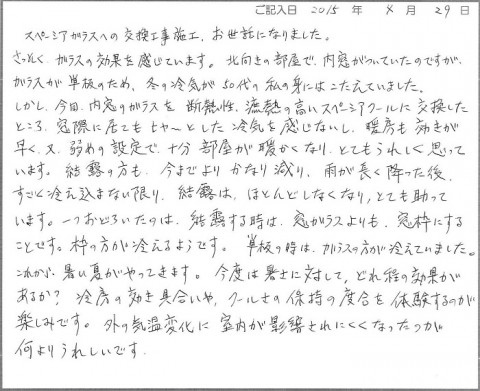 ご記入日 2015 年 4 月 29 日
スペーシアガラスへの交換工事施工、お世話になりました。
さっそく、ガラスの効果を感じています。北向きの部屋で、内窓がついていたのですが、
ガラスが単板のため、冬の冷気が50代の私の身にはこたえていました。
しかし、今回、内窓のガラスを断熱性、遮熱の高いスペーシアクールに交換した
ところ、窓際に居てもヒャ〜とした冷気を感じないし、暖房も効きが
早く、又、弱めの設定で、十分部屋が暖かくなり、とてもうれしく思って
います。結露の方も、今までよりかなり減り、雨が長く降った後、
すごく冷え込まない限り、結露は、ほとんどしなくなり、とても助って
います。一つおどろいたのは、結露する時は、窓ガラスよりも、窓枠にする
ことです。枠の方が冷えるようです。単板の時は、ガラスの方が冷えていました。
これから、暑い夏がやってきます。今度は暑さに対して、どれ程の効果が
あるか?冷房の効き具合いや、クールさの保持の度合を体験するのが
楽しみです。外の気温変化に室内が影響されにくくなったのが
何よりうれしいです。